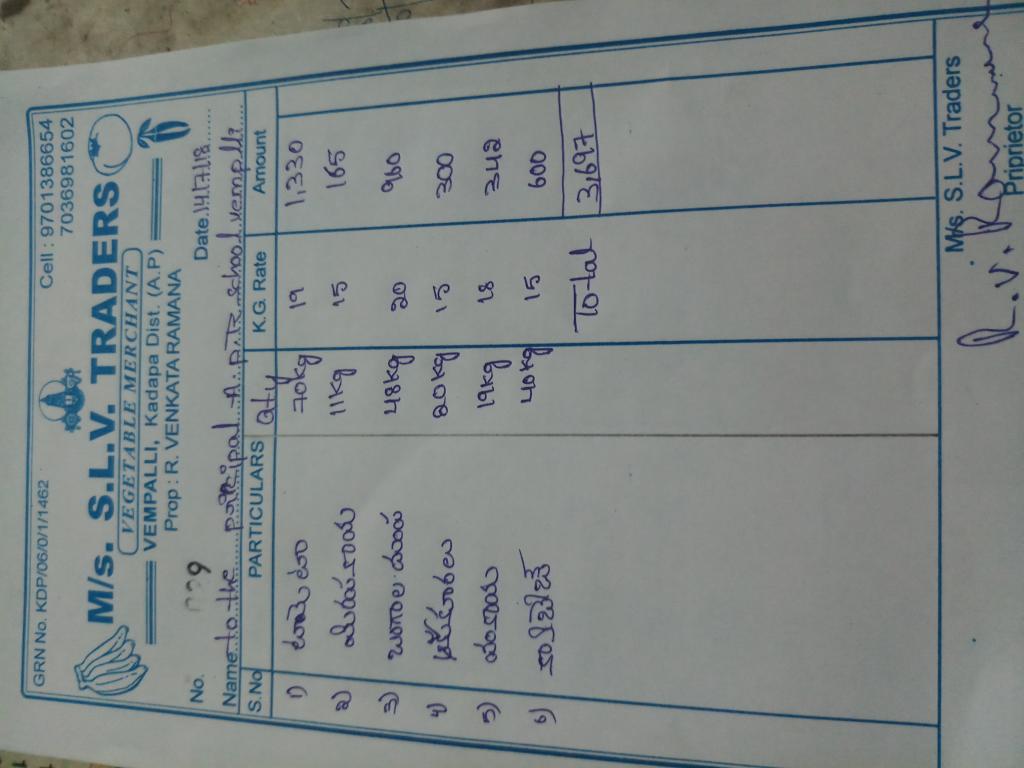 GRN No. KDP/06/0/1/1462 Cell : 9701386654
7036981602
M/s. S.L.V. TRADERS
VEGETABLE MERCHANT
VEMPALLI, Kadapa Dist. (A.P)
Prop : R. VENKATARAMANA
No. 009 Date.14.17.18
Name to the principal A.P.TR. school vempalli
S.No PARTICULARS Qty K.G. Rate Amount
1) 70kg 19 1,330
2) 11kg 15 165
3) 48kg 20 960
4) 20kg 15 300
5) 19kg 18 342
6) 40kg 15 600
Total 3,697
M/s. S.L.V. Traders
R.V. Ramana
Priprietor